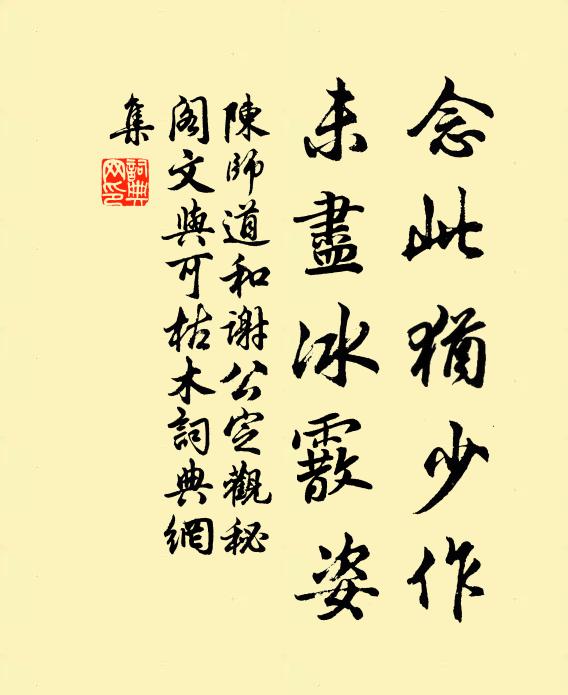 念此猶少作
未盡冰霰姿
陳師道和謝公定觀秘
閣文與可枯木詞典網
集
詞典
网印